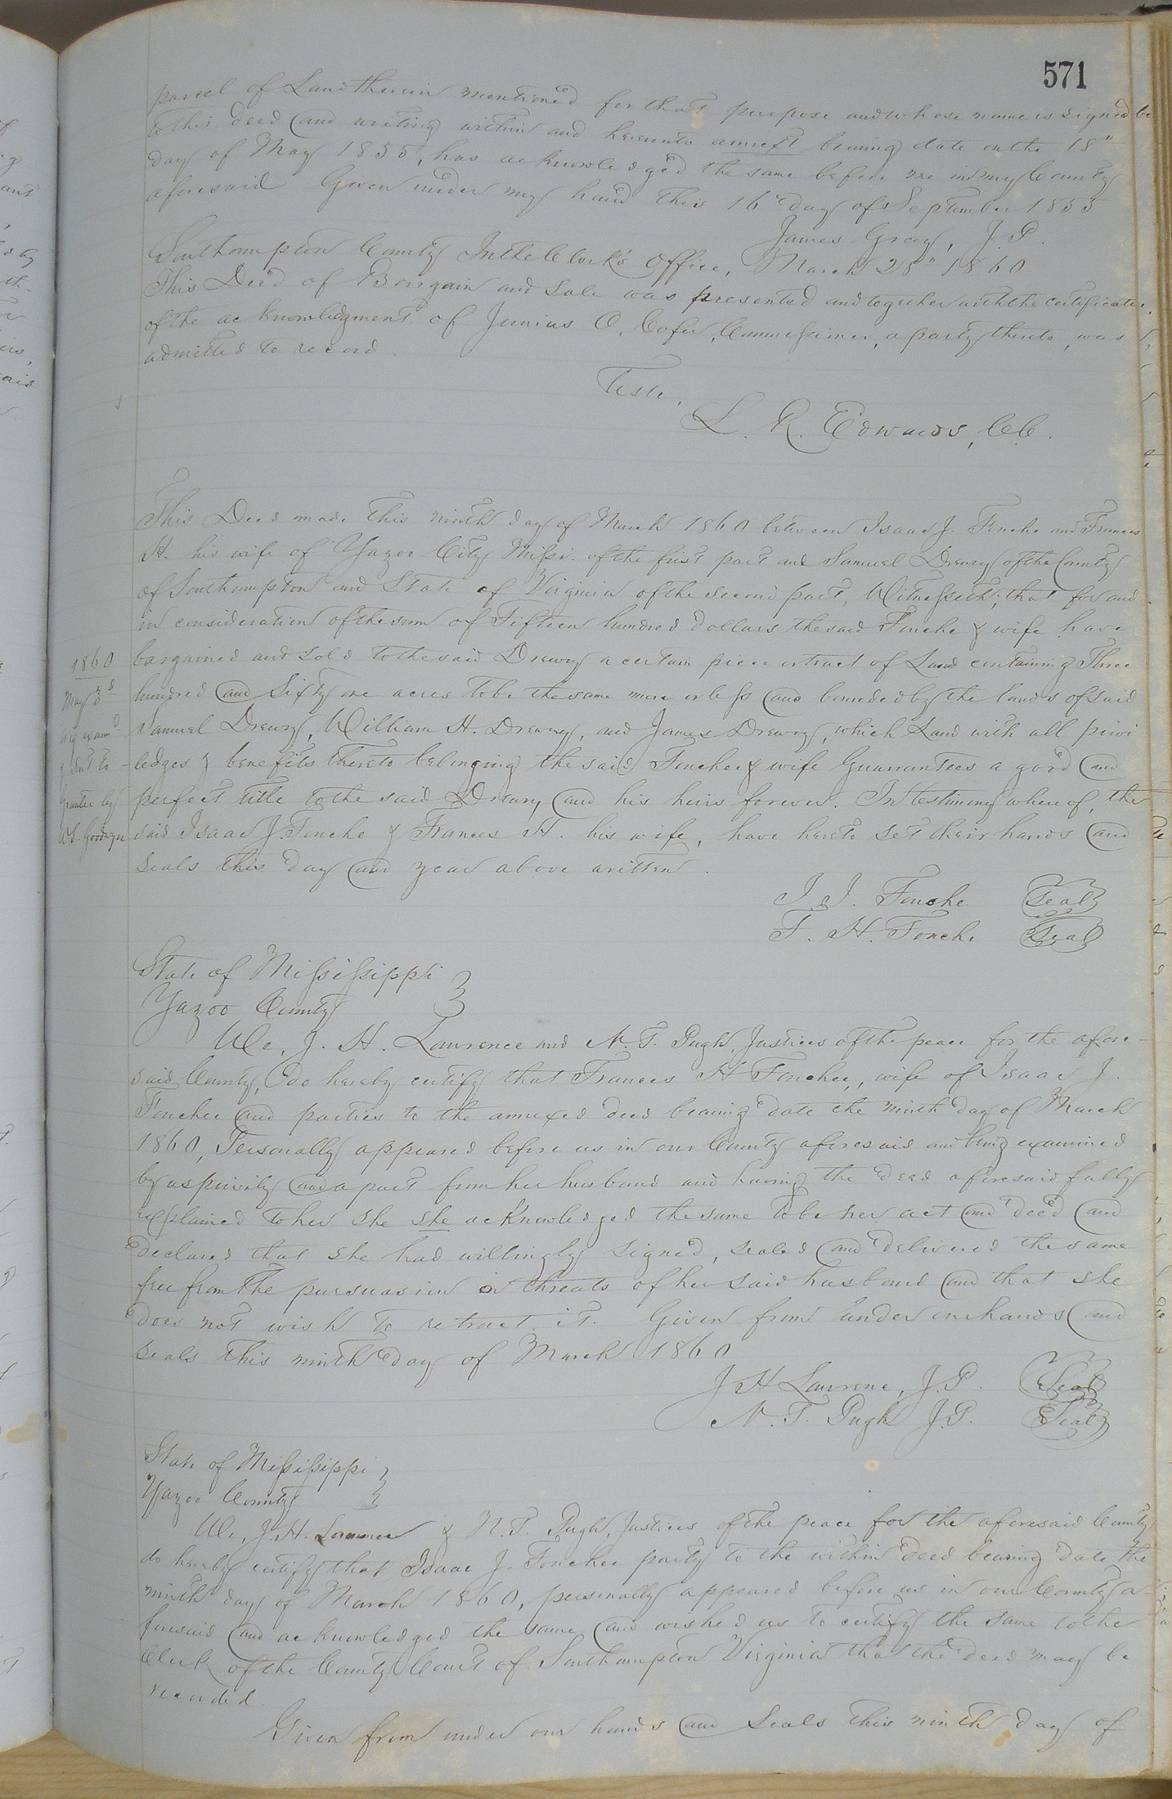 571
parcel of Land therein mentioned for that purpose and whose name is signed
to this deed and writing within and hereunto annext bearing date on the 18"
day of May 1855, has acknowledged the same before me in my County
aforesaid Given under my hand this 16" day of September 1855
James Gray, J.P.
Southampton County In the Clerk's Office, March 28" 1860
This Deed of Bargain and Sale was presented and together with the certificate
of the acknowledgment of Junius C. Cofer, Commissioner, a party thereto, was
admitted to record.
Teste,
L. R. Edwards, C.C.
This Deed made this ninth day of March 1860 between Isaac J. Fouche and Frances
H. his wife of Yazoo City Missi. of the first part and Samuel Drewry of the County
of Southampton and State of Virginia of the second part, Witnesseth; that for and
in consideration of the sum of Fifteen hundred dollars the said Fouche & wife have
bargained and sold to the said Drewry a certain piece or tract of Land containing Three
hundred and Sixty one acres to be the same more or less and bounded by the lands of said
Samuel Drewry, William H. Drewry, and James Drewry, which Land with all privi
ledges & benefits thereto belonging the said Fouche & wife Guarrantees a good and
perfect title to the said Drewry and his heirs forever. In testimony whereof, the
said Isaac J. Fouche & Frances H. his wife, have hereto set their hands and
seals this day and year above written.
1860
May 3d
I. J. Fouche Seal
F. H. Fouche Seal
State of Mississippi
Yazoo County
We, J. H. Lawrence and N. T. Pugh Justices of the peace for the afore-
said County, do hereby certify that Frances H Fouchee, wife of Isaac J.
Fouchee and parties to the annexed deed bearing date the ninth day of March
1860, Personally appeared before us in our County aforesaid and being examined
by us privily and apart from her husband and having the deed aforesaid fully
explained to her she she acknowledged the same to be her act and deed and
declared that she had willingly signed, sealed and delivered the same
free from the persuasion or threats of her said husband and that she
does not wish to retract it. Given from under our hands and
seals this ninth day of March 1860
J H Lawrence, J.P. Seal
N. T. Pugh J.P. Seal
State of Mississippi
Yazoo County
We, J. H. Lawrence & N. T. Pugh, Justices of the peace for the aforesaid County
do hereby certify that Isaac J. Fouchee party to the within deed bearing date the
ninth day of March 1860, personally appeared before us in our County a-
foresaid and acknowledged the same and wished us to certify the same to the
Clerk of the County Court of Southampton Virginia that the deed may be
recorded.
Given from under our hands and Seals this ninth day of